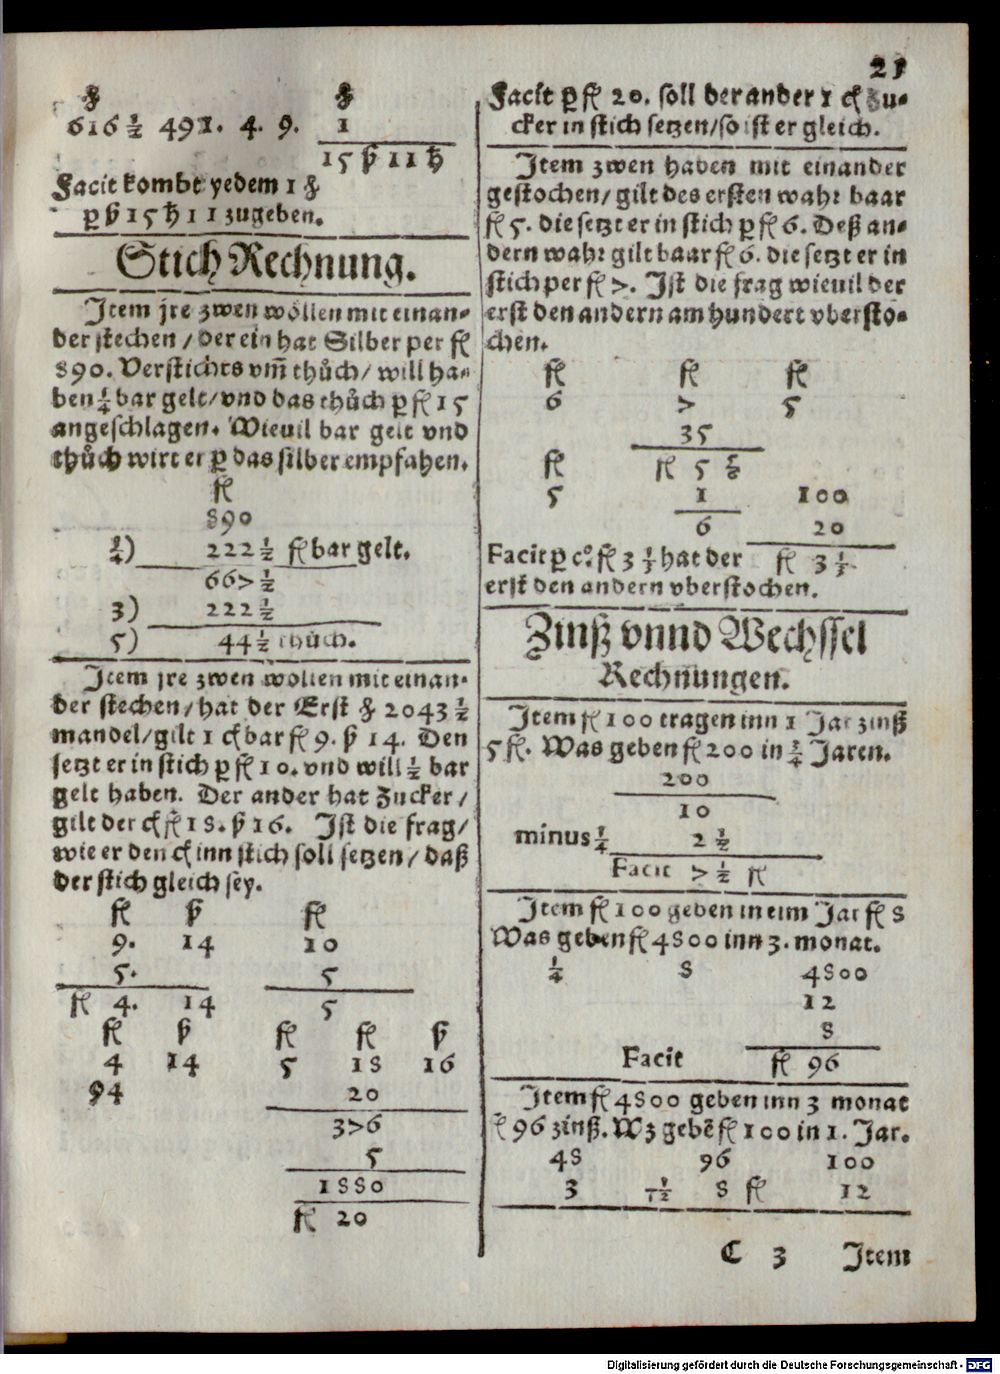 21
℔ ℔
616 ½ 491. 4. 9. 1
15 ß 11 hl
Facit kombt yedem 1 ℔
per ß 15 hl 11 zugeben.
Stich Rechnung.
Item jre zwen wöllen mit einan-
der stechen / der ein hat Silber per fl
890. Verstichts vm̃ thůch / will ha-
ben ¼ bar gelt / vnd das thůch p fl 15
angeschlagen. Wieuil bar gelt vnd
thůch wirt er p das silber empfahen.
fl
890
¼) 222 ½ fl bar gelt.
667 ½
3) 222 ½
5) 44 ½ thůch.
Item jre zwen wöllen mit einan-
der stechen / hat der Erst ℔ 2043 ½
mandel / gilt 1 c͡t bar fl 9. ß 14. Den
setzt er in stich p fl 10. vnd will ½ bar
gelt haben. Der ander hat Zucker /
gilt der c͡t fl 18. ß 16. Ist die frag /
wie er den c͡t inn stich soll setzen / daß
der stich gleich sey.
fl ß fl
9. 14 10
5. 5
fl 4. 14 5
fl ß fl fl ß
4 14 5 18 16
94 20
376
5
1880
fl 20
Facit p fl 20. soll der ander 1 c͡t Zu-
cker in stich setzen / so ist er gleich.
Item zwen haben mit einander
gestochen / gilt des ersten wahr baar
fl 5. die setzt er in stich p fl 6. Deß an-
dern wahr gilt baar fl 6. die setzt er in
stich per fl 7. Ist die frag wieuil der
erst den andern am hundert vbersto-
chen.
fl fl fl
6 7 5
35
fl fl 5 5/6
5 1 100
6 20
Facit p cº. fl 3 ⅓ hat der fl 3 ⅓
erst den andern vberstochen.
Zinß vnnd Wechssel
Rechnungen.
Item fl 100 tragen inn 1 Jar zinß
5 fl. Was geben fl 200 in ¾ Jaren.
200
10
minus ¼ 2 ½
Facit 7 ½ fl
Item fl 100 geben in eim Jar fl 8
Was geben fl 4800 inn 3. monat.
¼ 8 4800
12
8
Facit fl 96
Item fl 4800 geben inn 3 monat
fl 96 zinß. Wz gebẽ fl 100 in 1. Jar.
48 96 100
3 1/12 8 fl 12
C 3 Item
Digitalisierung gefördert durch die Deutsche Forschungsgemeinschaft - DFG